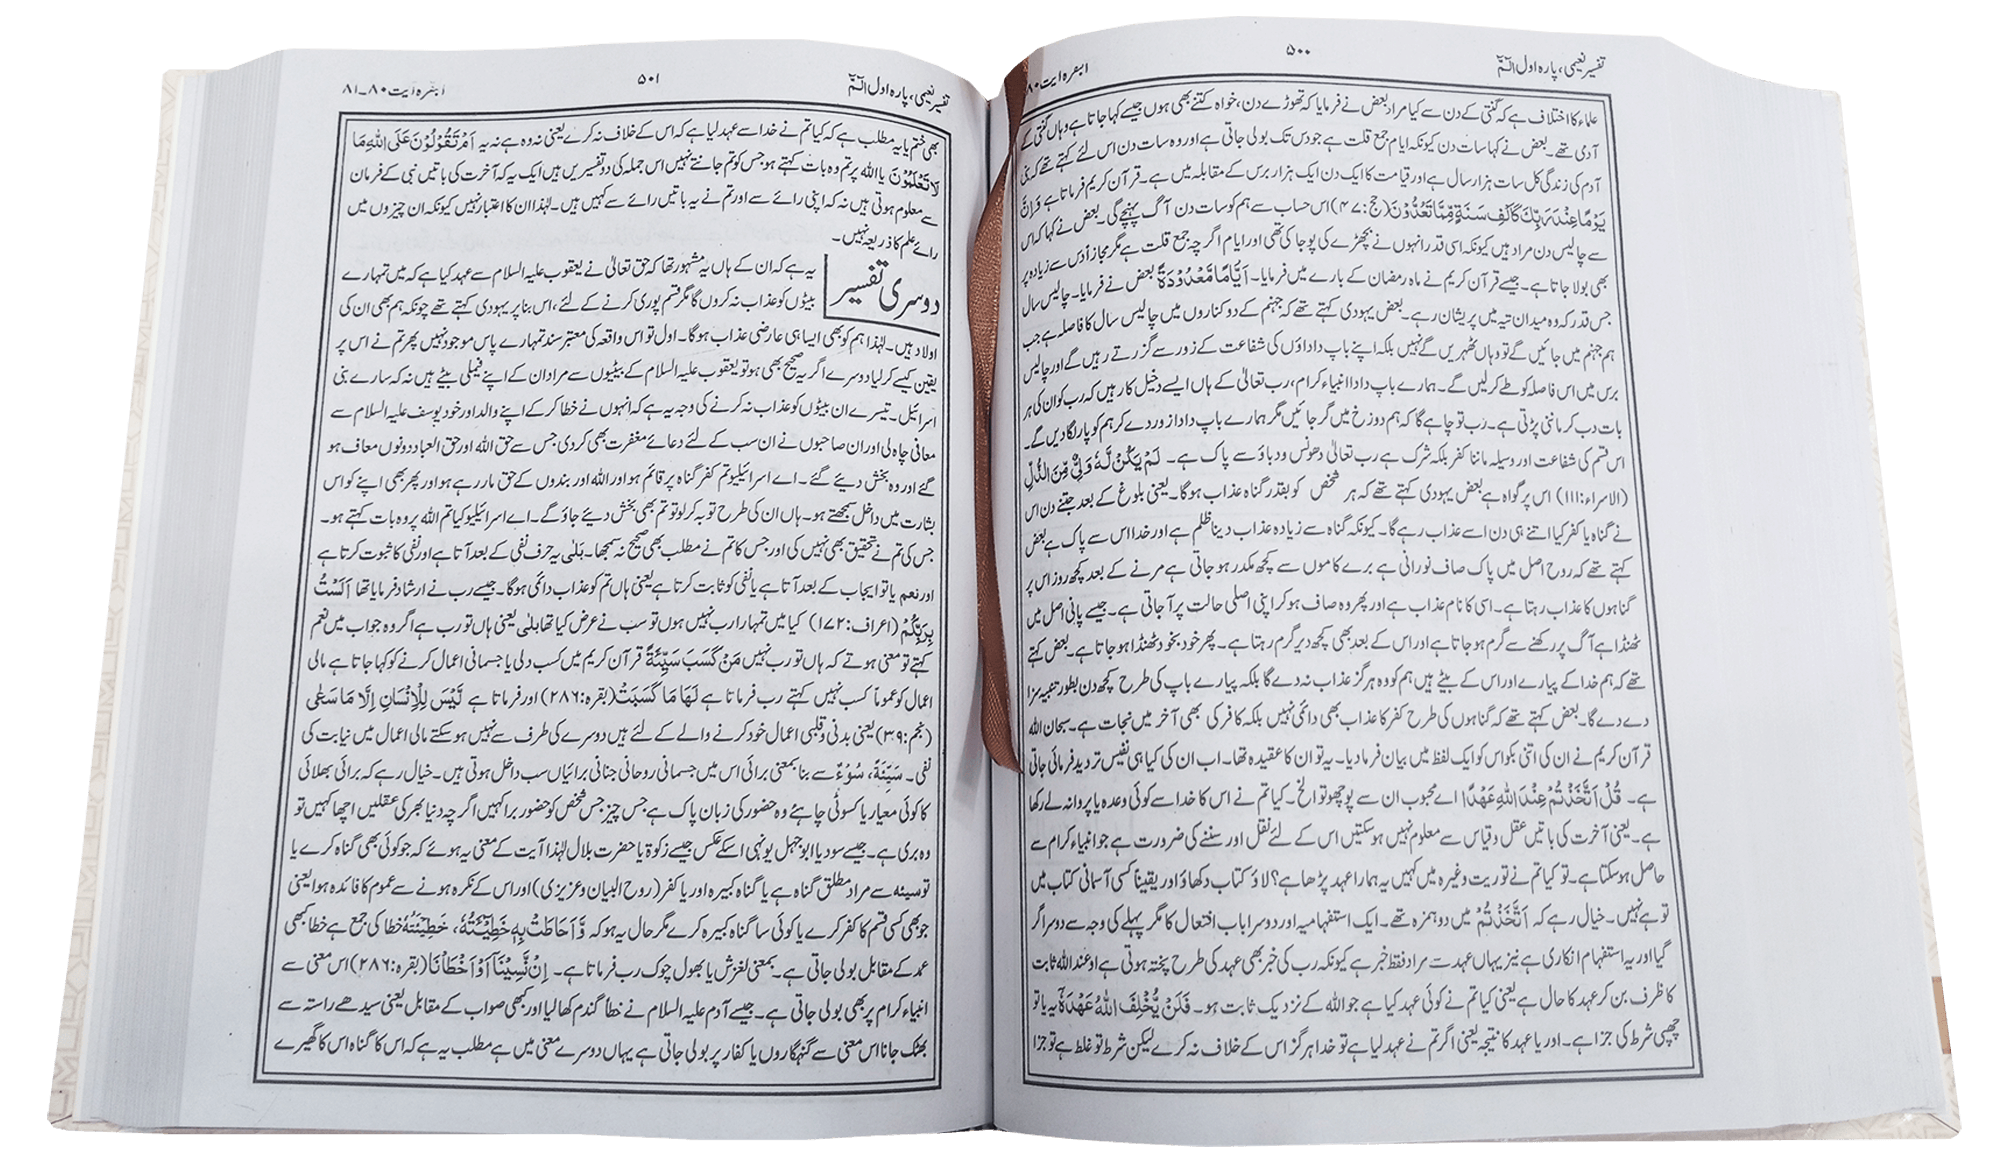 تفسیر نعیمی، پارہ اول الٓمّٓ
۵۰۰
البقرہ آیت ۸۰
علماء کا اختلاف ہے کہ گنتی کے دن سے کیا مراد بعض نے فرمایا کہ تھوڑے دن، خواہ کتنے بھی ہوں جیسے کہا جاتا ہے وہاں گنتی کے
آدمی تھے۔ بعض نے کہا سات دن کیونکہ ایام جمع قلت ہے جو دس تک بولی جاتی ہے اور وہ سات دن اس لئے کہتے تھے کہ بنی
آدم کی زندگی کل سات ہزار سال ہے اور قیامت کا ایک دن ایک ہزار برس کے مقابلہ میں ہے۔ قرآن کریم فرماتا ہے وَاِنَّ
یَوۡمًا عِنۡدَ رَبِّكَ كَاَلۡفِ سَنَةٍ مِّمَّا تَعُدُّوۡنَ (حج:۴۷) اس حساب سے ہم کو سات دن آگ پہنچے گی۔ بعض نے کہا کہ اس
سے چالیس دن مراد ہیں کیونکہ اسی قدر انہوں نے بچھڑے کی پوجا کی تھی اور ایام اگر چہ جمع قلت ہے مگر مجازاً دس سے زیادہ پر
بھی بولا جاتا ہے۔ جیسے قرآن کریم نے ماہ رمضان کے بارے میں فرمایا۔ اَیَّامًا مَّعۡدُوۡدَةً بعض نے فرمایا۔ چالیس سال
جس قدر کہ وہ میدان تیہ میں پریشان رہے۔ بعض یہودی کہتے تھے کہ جہنم کے دو کناروں میں چالیس سال کا فاصلہ ہے جب
ہم جہنم میں جائیں گے تو وہاں ٹھہریں گے نہیں بلکہ اپنے باپ داداؤں کی شفاعت کے زور سے گزرتے رہیں گے اور چالیس
برس میں اس فاصلہ کو طے کر لیں گے۔ ہمارے باپ دادا انبیاء کرام، رب تعالیٰ کے ہاں ایسے دخیل کار ہیں کہ رب کو ان کی ہر
بات دب کر ماننی پڑتی ہے۔ رب تو چاہے گا کہ ہم دوزخ میں گر جائیں مگر ہمارے باپ دادا زور دے کر ہم کو پار لگا دیں گے۔
اس قسم کی شفاعت اور وسیلہ ماننا کفر بلکہ شرک ہے رب تعالیٰ دھونس و دباؤ سے پاک ہے۔ لَمۡ یَكُنۡ لَّهٗ وَلِیٌّ مِّنَ الذُّلِّ
(الاسراء:۱۱۱) اس پر گواہ ہے بعض یہودی کہتے تھے کہ ہر شخص کو بقدر گناہ عذاب ہوگا۔ یعنی بلوغ کے بعد جتنے دن اس
نے گناہ یا کفر کیا اتنے ہی دن اسے عذاب رہے گا۔ کیونکہ گناہ سے زیادہ عذاب دینا ظلم ہے اور خدا اس سے پاک ہے بعض
کہتے تھے کہ روح اصل میں پاک صاف نورانی ہے برے کاموں سے کچھ مکدر ہو جاتی ہے مرنے کے بعد کچھ روز اس پر
گناہوں کا عذاب رہتا ہے۔ اسی کا نام عذاب ہے اور پھر وہ صاف ہو کر اپنی اصلی حالت پر آ جاتی ہے۔ جیسے پانی اصل میں
ٹھنڈا ہے آگ پر رکھنے سے گرم ہو جاتا ہے اور اس کے بعد بھی کچھ دیر گرم رہتا ہے۔ پھر خود بخود ٹھنڈا ہو جاتا ہے۔ بعض کہتے
تھے کہ ہم خدا کے پیارے اور اس کے بیٹے ہیں ہم کو وہ ہرگز عذاب نہ دے گا بلکہ پیارے باپ کی طرح کچھ دن بطور تنبیہ سزا
دے دے گا۔ بعض کہتے تھے کہ گناہوں کی طرح کفر کا عذاب بھی دائمی نہیں بلکہ کافر کی بھی آخر میں نجات ہے۔ سبحان اللہ
قرآن کریم نے ان کی اتنی بکواس کو ایک لفظ میں بیان فرما دیا۔ یہ تو ان کا عقیدہ تھا۔ اب ان کی کیا ہی نفیس تردید فرمائی جاتی
ہے۔ قُلۡ اَتَّخَذۡتُمۡ عِنۡدَ اللّٰهِ عَهۡدًا اے محبوب ان سے پوچھو تو الخ۔ کیا تم نے اس کا خدا سے کوئی وعدہ یا پروانہ لے رکھا
ہے۔ یعنی آخرت کی باتیں عقل و قیاس سے معلوم نہیں ہو سکتیں اس کے لئے نقل اور سننے کی ضرورت ہے جو انبیاء کرام سے
حاصل ہو سکتا ہے۔ تو کیا تم نے توریت وغیرہ میں کہیں یہ ہمارا عہد پڑھا ہے؟ لاؤ کتاب دکھاؤ اور یقیناً کسی آسمانی کتاب میں
تو ہے نہیں۔ خیال رہے کہ اَتَّخَذۡتُمۡ میں دو ہمزہ تھے۔ ایک استفہامیہ اور دوسرا باب افتعال کا مگر پہلے کی وجہ سے دوسرا گر
گیا اور یہ استفہام انکاری ہے نیز یہاں عہد سے مراد فقط خبر ہے کیونکہ رب کی خبر بھی عہد کی طرح پختہ ہوتی ہے او عند اللہ ثابت
کا ظرف بن کر عہد کا حال ہے یعنی کیا تم نے کوئی عہد کیا ہے جو اللہ کے نزدیک ثابت ہو۔ فَلَنۡ یُّخۡلِفَ اللّٰهُ عَهۡدَهٗ یہ یا تو
چھپی شرط کی جزا ہے۔ اور یا عہد کا نتیجہ یعنی اگر تم نے عہد لیا ہے تو خدا ہرگز اس کے خلاف نہ کرے لیکن شرط تو غلط ہے تو جزا
تفسیر نعیمی، پارہ اول الٓمّٓ
۵۰۱
البقرہ آیت ۸۰۔۸۱
بھی ختم یا یہ مطلب ہے کہ کیا تم نے خدا سے عہد لیا ہے کہ اس کے خلاف نہ کرے یعنی نہ وہ ہے نہ یہ اَمۡ تَقُوۡلُوۡنَ عَلَی اللّٰهِ مَا
لَا تَعۡلَمُوۡنَ یا اللہ پر تم وہ بات کہتے ہو جس کو تم جانتے نہیں اس جملہ کی دو تفسیریں ہیں ایک یہ کہ آخرت کی باتیں نبی کے فرمان
سے معلوم ہوتی ہیں نہ کہ اپنی رائے سے اور تم نے یہ باتیں رائے سے کہیں ہیں۔ لہٰذا ان کا اعتبار نہیں کیونکہ ان چیزوں میں
رائے علم کا ذریعہ نہیں۔
دوسری تفسیر
یہ ہے کہ ان کے ہاں یہ مشہور تھا کہ حق تعالیٰ نے یعقوب علیہ السلام سے عہد کیا ہے کہ میں تمہارے
بیٹوں کو عذاب نہ کروں گا مگر قسم پوری کرنے کے لئے، اس بنا پر یہودی کہتے تھے چونکہ ہم بھی ان کی
اولاد ہیں۔ لہٰذا ہم کو بھی ایسا ہی عارضی عذاب ہوگا۔ اول تو اس واقعہ کی معتبر سند تمہارے پاس موجود نہیں پھر تم نے اس پر
یقین کیسے کر لیا دوسرے اگر یہ صحیح بھی ہو تو یعقوب علیہ السلام کے بیٹیوں سے مراد ان کے اپنے فیملی بیٹے ہیں نہ کہ سارے بنی
اسرائیل۔ تیسرے ان بیٹوں کو عذاب نہ کرنے کی وجہ یہ ہے کہ انہوں نے خطا کر کے اپنے والد اور خود یوسف علیہ السلام سے
معافی چاہ لی اور ان صاحبوں نے ان سب کے لئے دعائے مغفرت بھی کر دی جس سے حق اللہ اور حق العباد دونوں معاف ہو
گئے اور وہ بخش دیئے گئے۔ اے اسرائیلیو تم کفر گناہ پر قائم ہو اور اللہ اور بندوں کے حق مار رہے ہو اور پھر بھی اپنے کو اس
بشارت میں داخل سمجھتے ہو۔ ہاں ان کی طرح توبہ کر لو تو تم بھی بخش دیئے جاؤ گے۔ اے اسرائیلیو کیا تم اللہ پر وہ بات کہتے ہو۔
جس کی تم نے تحقیق بھی نہیں کی اور جس کا تم نے مطلب بھی صحیح نہ سمجھا۔ بَلٰی یہ حرف نفی کے بعد آتا ہے اور نفی کا ثبوت کرتا ہے
اور نعم یا تو ایجاب کے بعد آتا ہے یا نفی کو ثابت کرتا ہے یعنی ہاں تم کو عذاب دائمی ہوگا۔ جیسے رب نے ارشاد فرمایا تھا اَلَسۡتُ
بِرَبِّكُمۡ (اعراف:۱۷۲) کیا میں تمہارا رب نہیں ہوں تو سب نے عرض کیا تھا بلٰی یعنی ہاں تو رب ہے اگر وہ جواب میں نعم
کہتے تو معنی ہوتے کہ ہاں تو رب نہیں مَنۡ كَسَبَ سَیِّئَةً قرآن کریم میں کسب دلی یا جسمانی اعمال کرنے کو کہا جاتا ہے مالی
اعمال کو عموماً کسب نہیں کہتے رب فرماتا ہے لَهَا مَا كَسَبَتۡ (بقرہ:۲۸۶) اور فرماتا ہے لَیۡسَ لِلۡاِنۡسَانِ اِلَّا مَا سَعٰی
(نجم:۳۹) یعنی بدنی و قلبی اعمال خود کرنے والے کے لئے ہیں دوسرے کی طرف سے نہیں ہو سکتے مالی اعمال میں نیابت کی
نفی۔ سَیِّئَةً، سُوۡءٌ سے بنا بمعنی برائی اس میں جسمانی روحانی جنانی برائیاں سب داخل ہوتی ہیں۔ خیال رہے کہ برائی بھلائی
کا کوئی معیار یا کسوٹی چاہئے وہ حضور کی زبان پاک ہے جس چیز جس شخص کو حضور برا کہیں اگر چہ دنیا بھر کی عقلیں اچھا کہیں تو
وہ بری ہے۔ جیسے سود یا ابوجہل یونہی اسکے عکس جیسے زکوۃ یا حضرت بلال لہٰذا آیت کے معنی یہ ہوئے کہ جو کوئی بھی گناہ کرے یا
تو سیئہ سے مراد مطلق گناہ ہے یا گناہ کبیرہ اور یا کفر (روح البیان و عزیزی) اور اس کے نکرہ ہونے سے عموم کا فائدہ ہوا یعنی
جو بھی کسی قسم کا کفر کرے یا کوئی سا گناہ کبیرہ کرے مگر حال یہ ہو کہ وَّاَحَاطَتۡ بِهٖ خَطِیۡٓئَتُهٗ، خَطِیۡٓئَتُهٗ خطا کی جمع ہے خطا کبھی
عمد کے مقابل بولی جاتی ہے۔ بمعنی لغزش یا بھول چوک رب فرماتا ہے۔ اِنۡ نَّسِیۡنَاۤ اَوۡ اَخۡطَاۡنَا (بقرہ:۲۸۶) اس معنی سے
انبیاء کرام پر بھی بولی جاتی ہے۔ جیسے آدم علیہ السلام نے خطاً گندم کھا لیا اور کبھی صواب کے مقابل یعنی سیدھے راستہ سے
بھٹک جانا اس معنی سے گنہگاروں یا کفار پر بولی جاتی ہے یہاں دوسرے معنی میں ہے مطلب یہ ہے کہ اس کا گناہ اس کا گھیرے